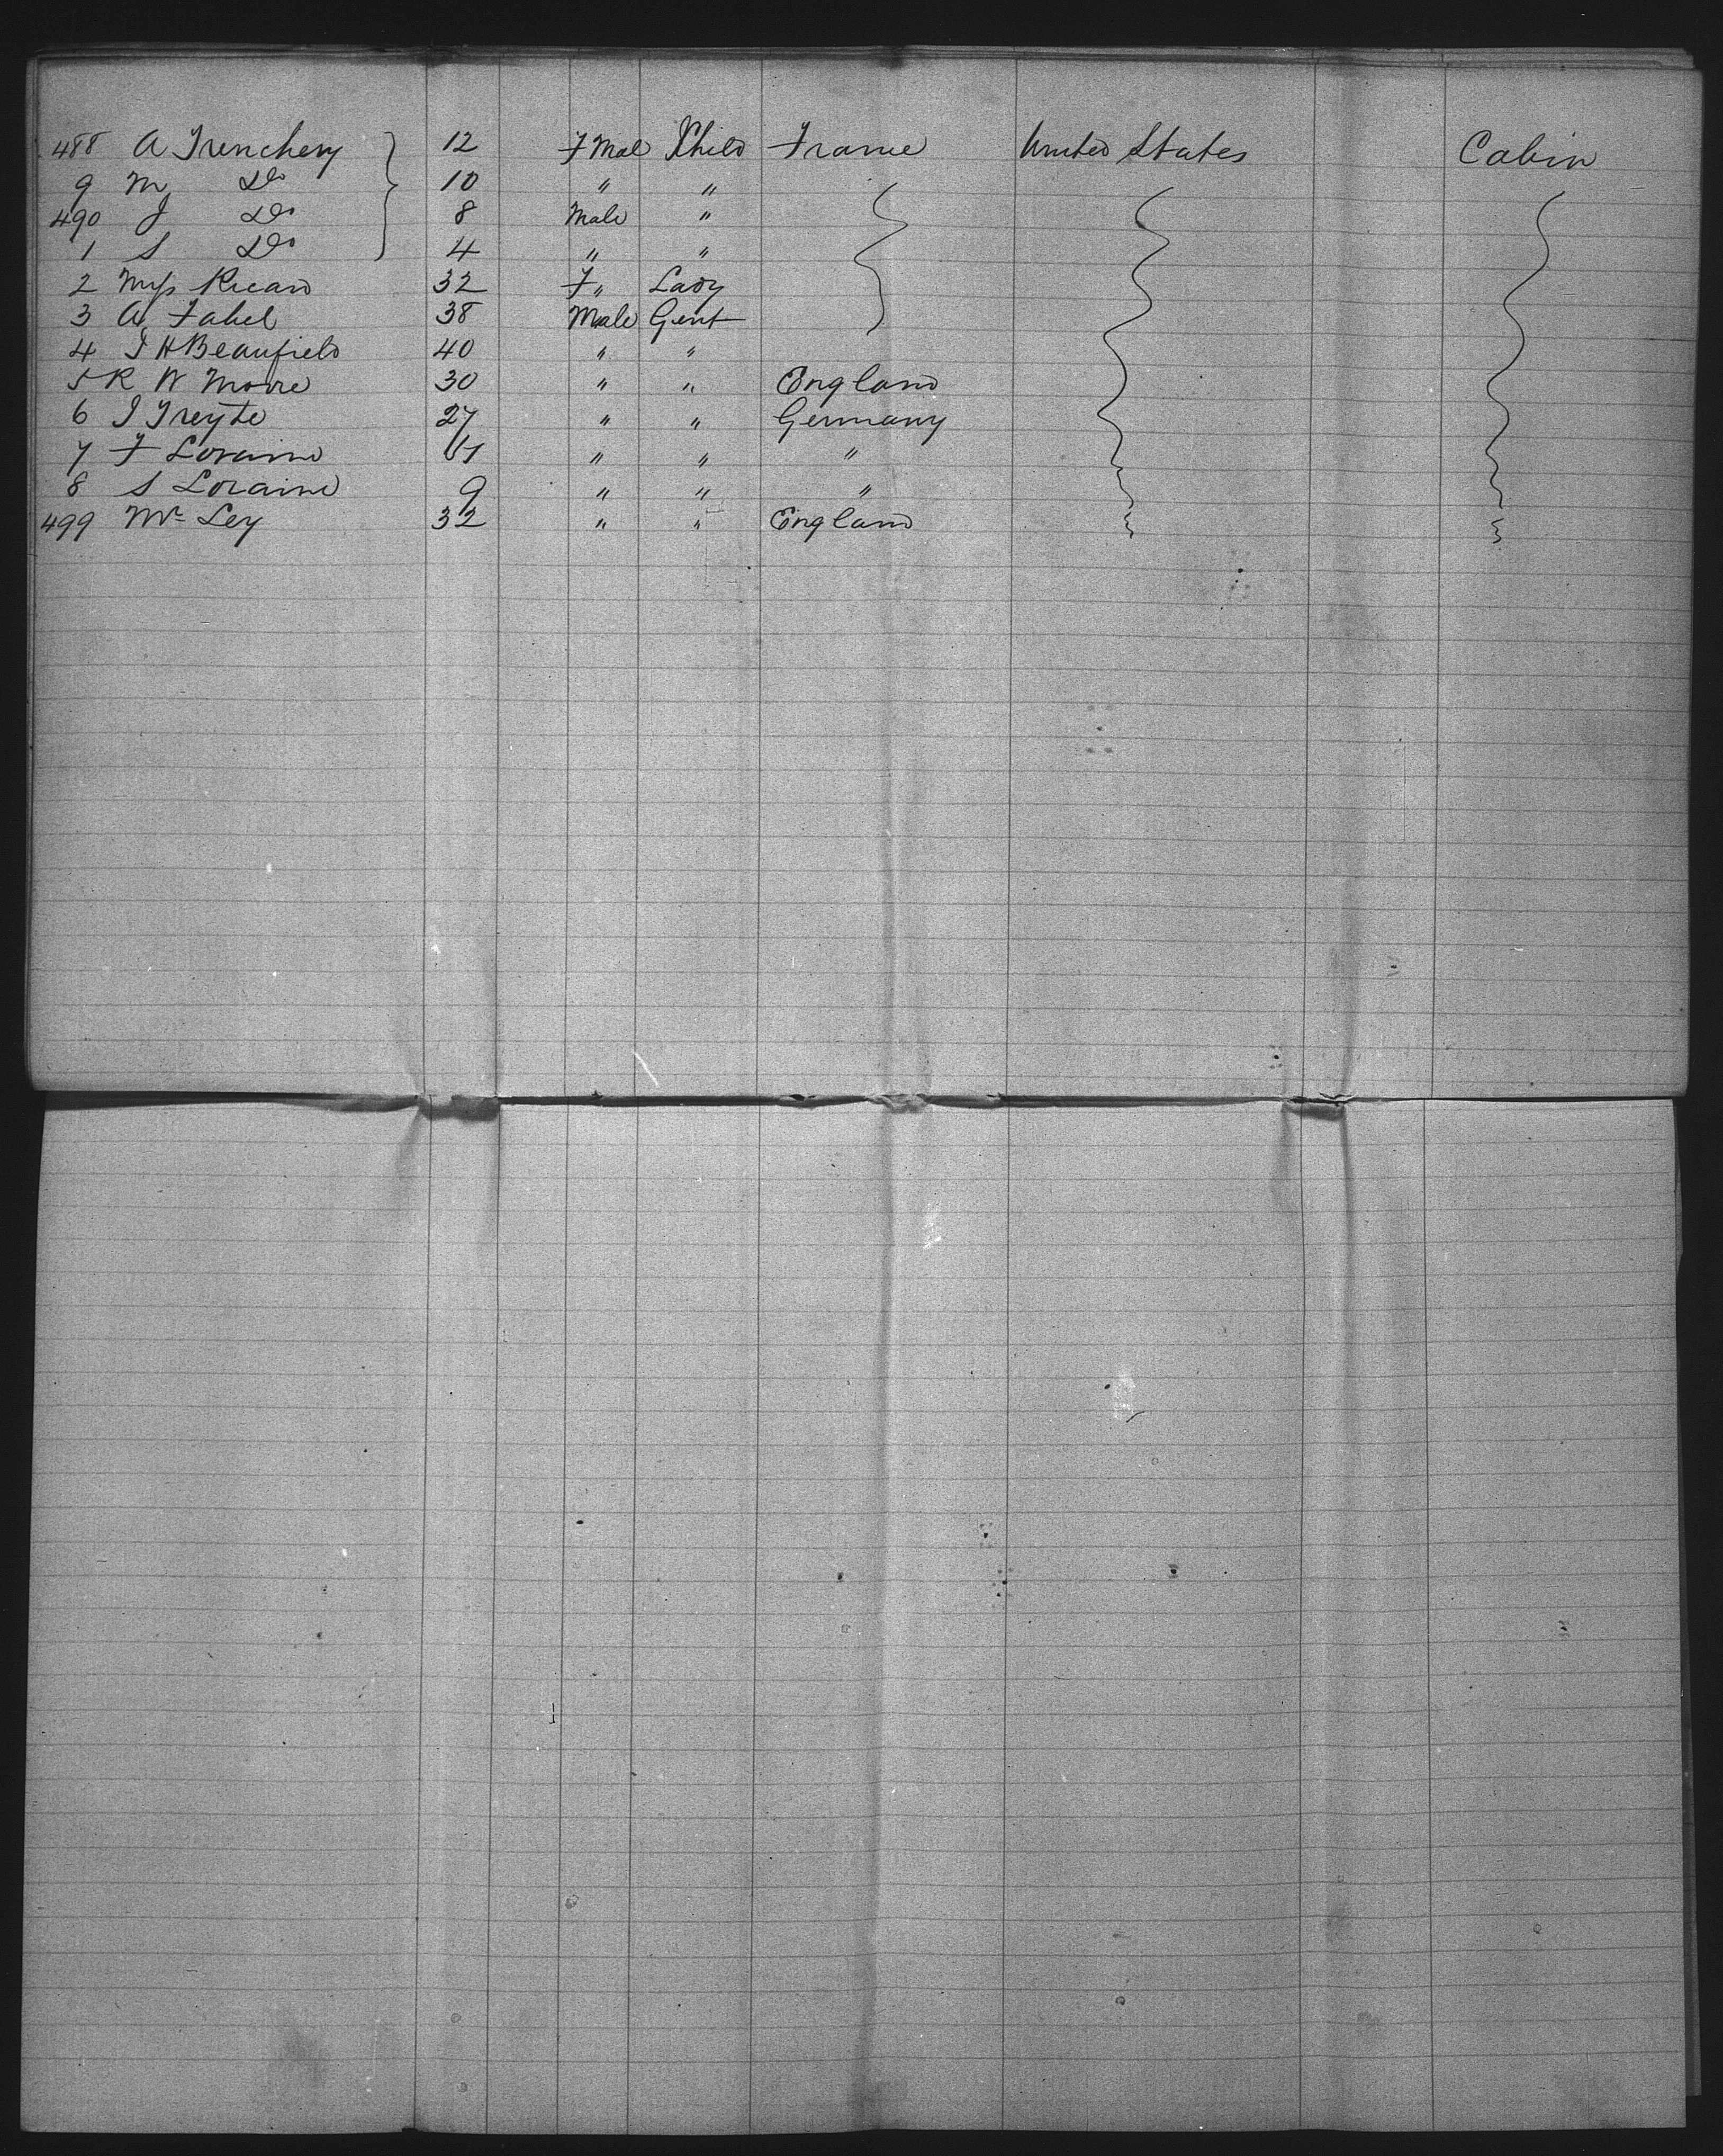 488 A Trenchery 12 F Mal Child France United States Cabin
9 M Do 10 " "
490 J Do 8 Male "
1 S Do 4 " "
2 Miss Ricard 32 F " Lady
3 A Fabel 38 Male Gent
4 J H Beaufield 40 " "
5 R W Moore 30 " " England
6 J Treyte 27 " " Germany
7 F Loraine " " "
8 S Loraine 9 " " "
499 Mr Ley 32 " " England